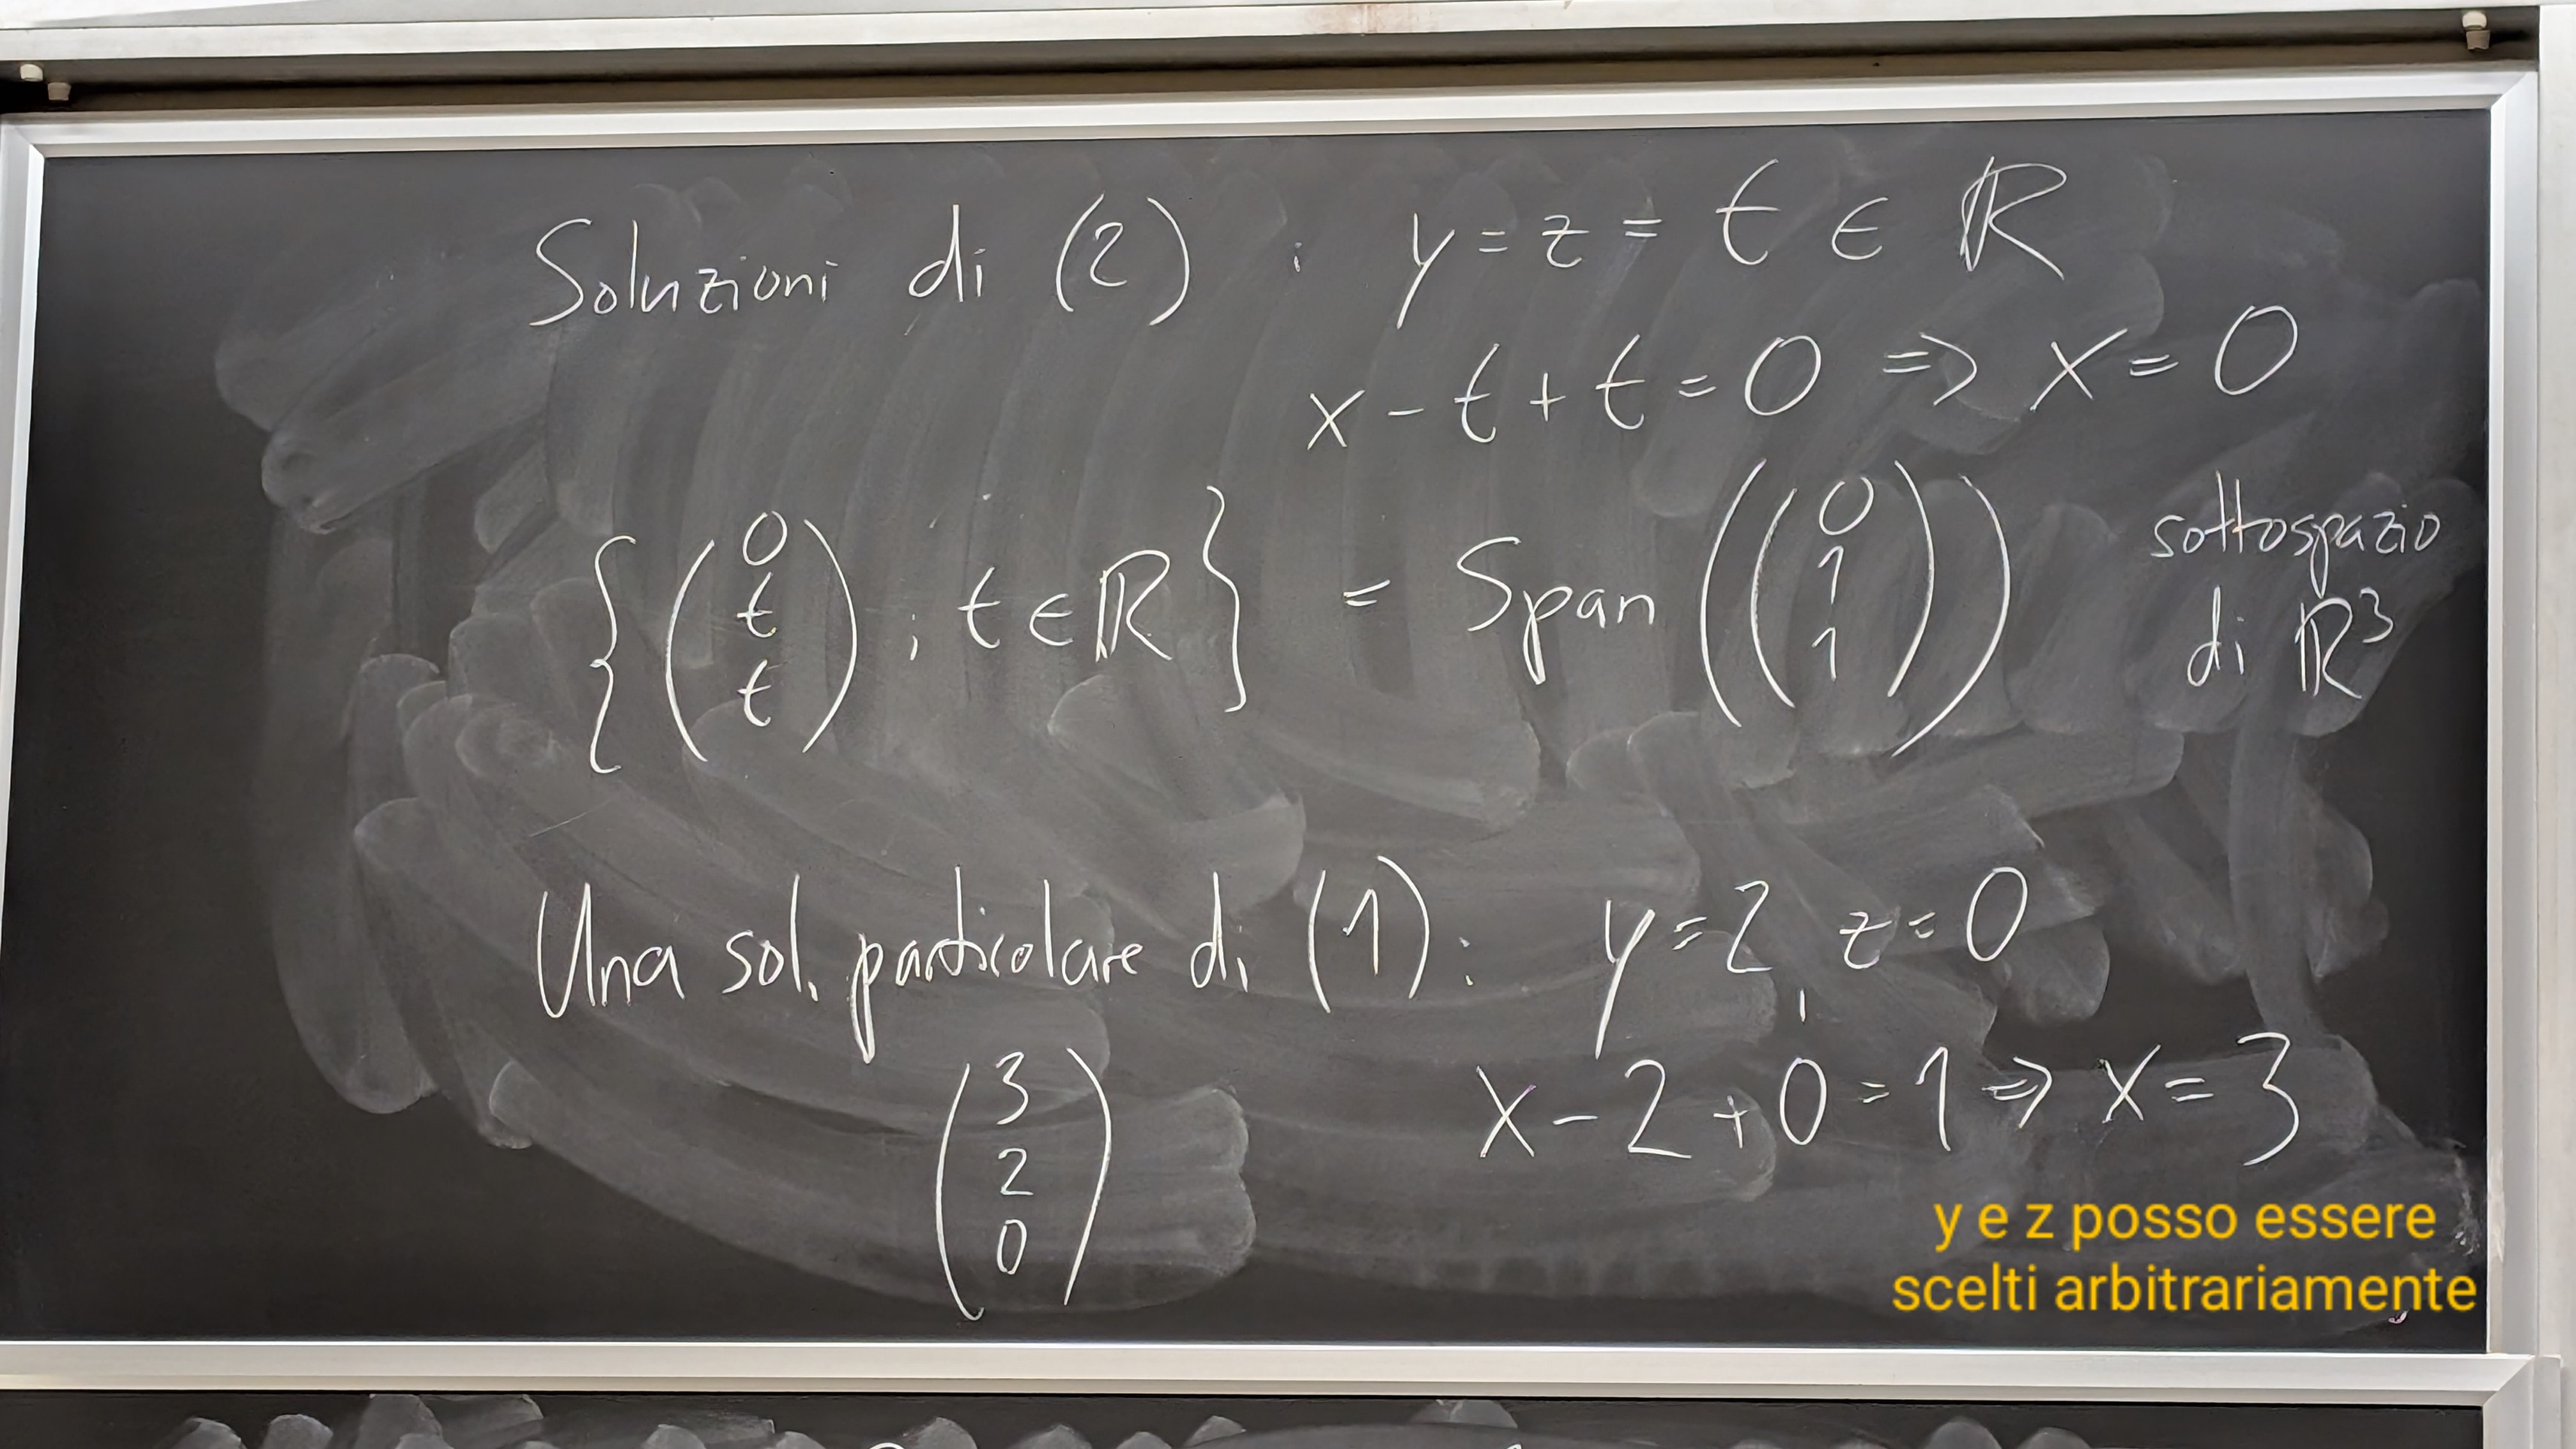 Soluzioni di (2) : y = z = t ∈ ℝ
x - t + t = 0 => x = 0
{ ( 0 t t ) ; t ∈ ℝ } = Span ( ( 0 1 1 ) ) sottospazio di ℝ³
Una sol. particolare di (1): y = 2, z = 0
x - 2 + 0 = 1 => x = 3
( 3 2 0 )
y e z posso essere
scelti arbitrariamente